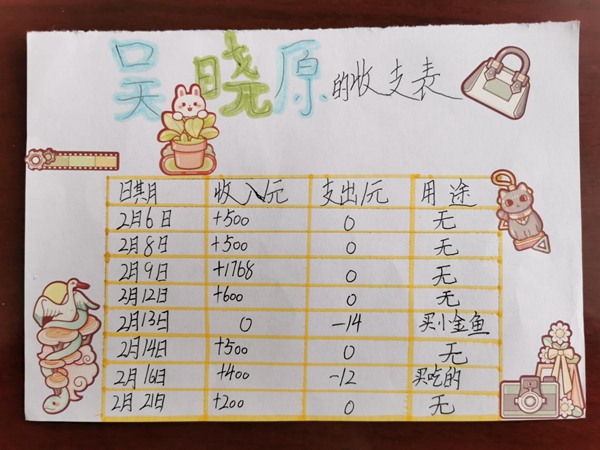 吴晓原的收支表
日期 收入/元 支出/元 用途
2月6日 +500 0 无
2月8日 +500 0 无
2月9日 +1768 0 无
2月12日 +600 0 无
2月13日 0 -14 买小金鱼
2月14日 +500 0 无
2月16日 +400 -12 买吃的
2月21日 +200 0 无